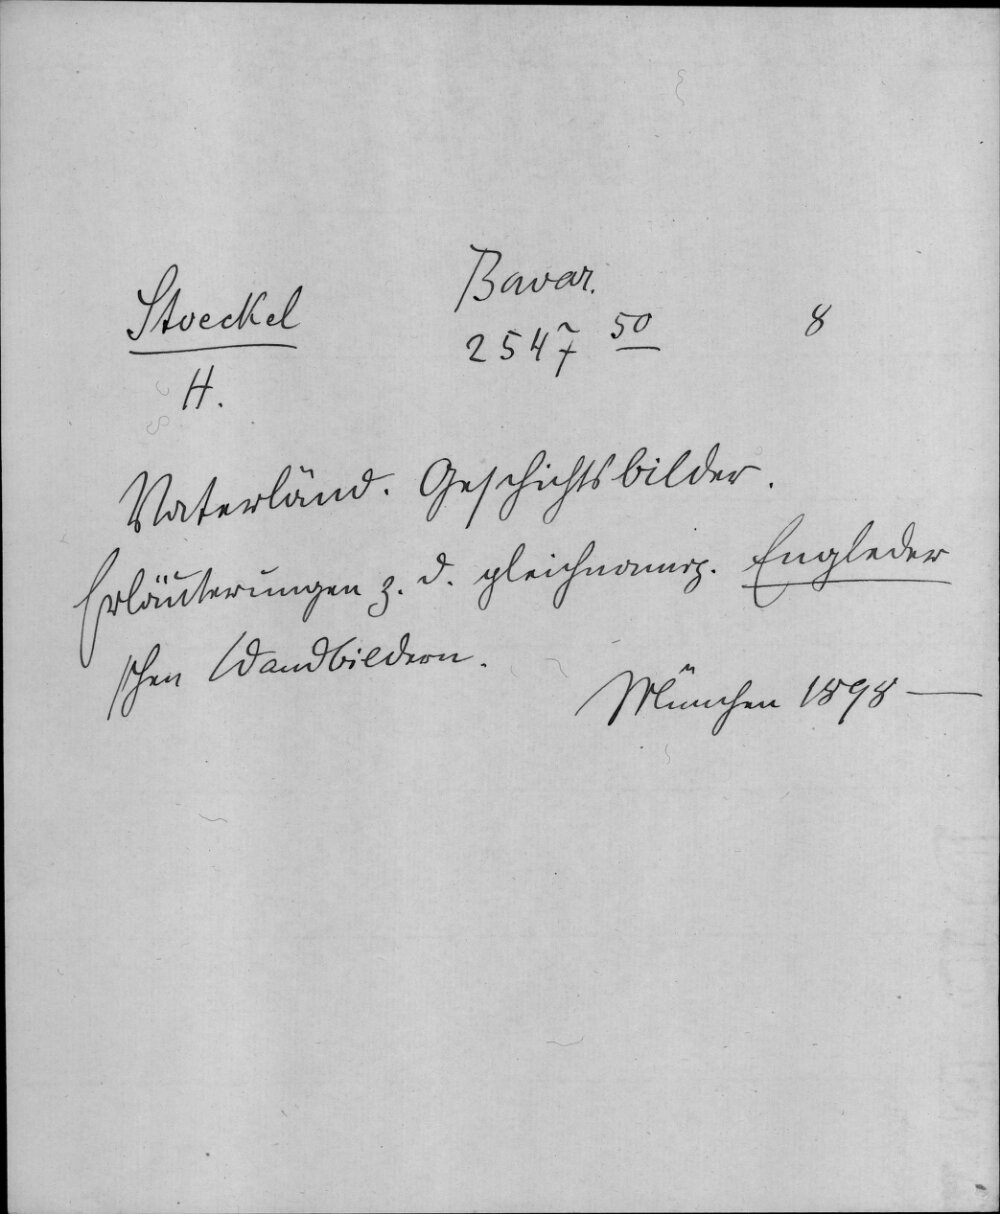 Stoeckel
H.
Bavar.
2547 50
8
Vaterländ. Geschichtsbilder.
Erläuterungen z. d. gleichnamig. Engleder
schen Wandbildern.
München 1898 —